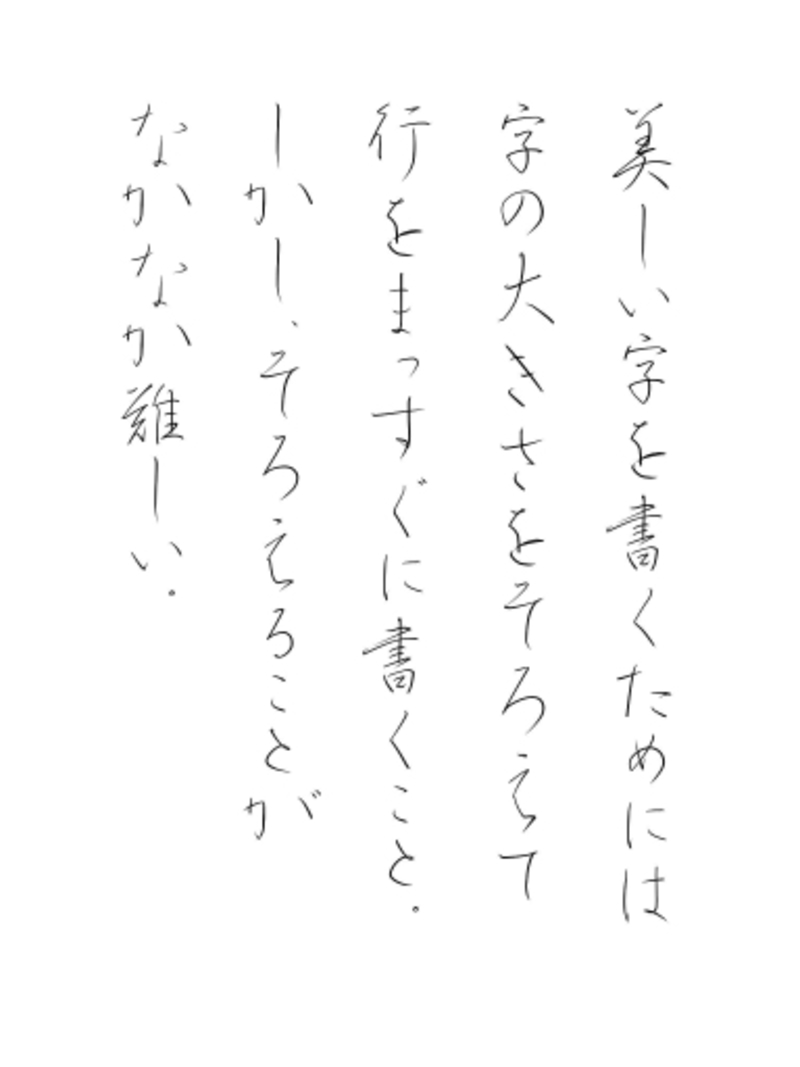 美しい字を書くためには
字の大きさをそろえて
行をまっすぐに書くこと。
しかし、そろえることが
なかなか難しい。